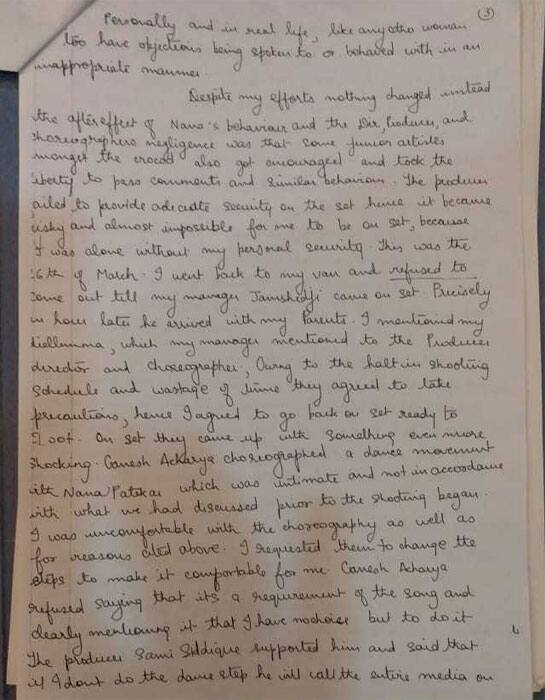 (3)
Personally and in real life, like any othe woman
too have objections being spoken to or behaved with in an
inappropriate manner.
Despite my efforts nothing changed instead
the aftereffect of Nana's behaviour and the Dir, Producer, and
horeographers negligence was that some junior artistes
mongst the crowd also got encouraged and took the
iberty to pass comments and similar behaviour. The producer
ailed to provide adecuate security on the set hence it became
isky and almost impossible for me to be on set, because
I was alone without my personal security. This was the
6th of March. I went back to my van and refused to
come out till my manager Jamshidji came on set. Precisely
an hour later he arrived with my Parents. I mentioned my
, which my manager mentioned to the Producer
director and choreographer, Owing to the halt in shooting
schedule and wastage of time they agreed to take
precautions, hence I agreed to go back on set ready to
shoot. On set they came up with something even more
shocking. Ganesh Acharya choreographed a dance movement
ith Nana Patekar which was intimate and not in accordance
with what we had discussed prior to the shooting began.
I was uncomfortable with the choreography as well as
for reasons cited above. I requested them to change the
steps to make it comfortable for me. Ganesh Acharya
refused saying that its a requirement of the song and
clearly mentioning it that I have no choise but to do it
The producer Sami Siddique supported him and said that
if I dont do the dance step he will call the entire media on